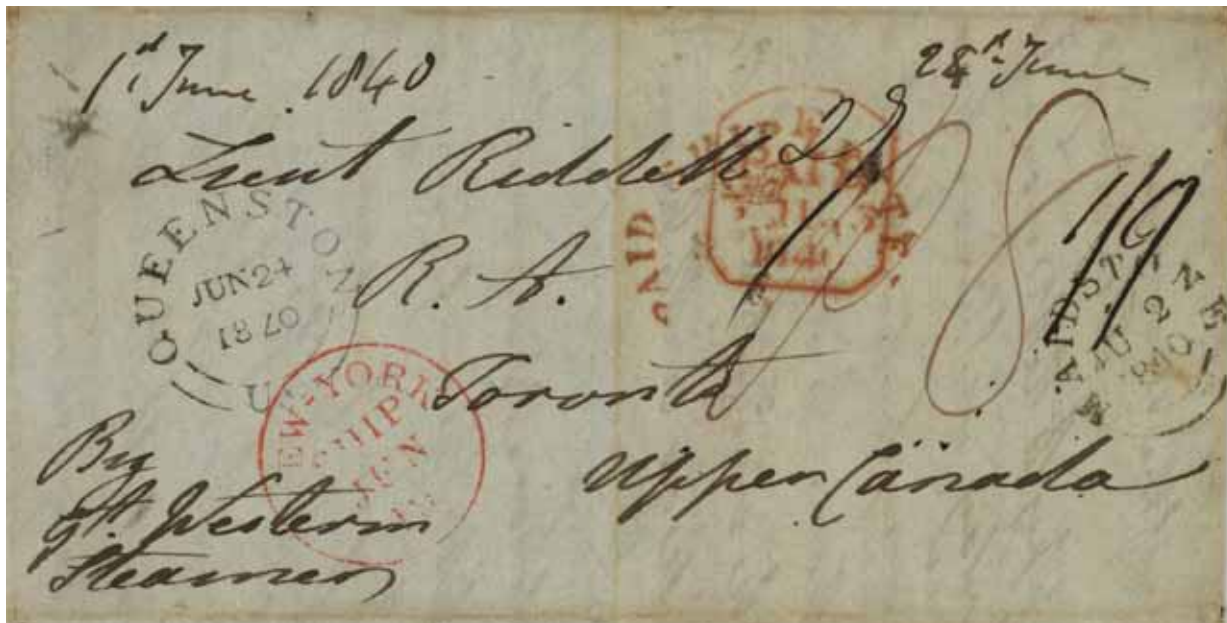 1st June 1840
28th June
Lieut Riddell
R. A.
Toronto
Upper Canada
By
Gt. Western
Steamer
QUEENSTON
JUN 24
1840
U
EW-YORK
SHIP
JUN
PAID
MAIDSTONE
JU 2
1840
1/9